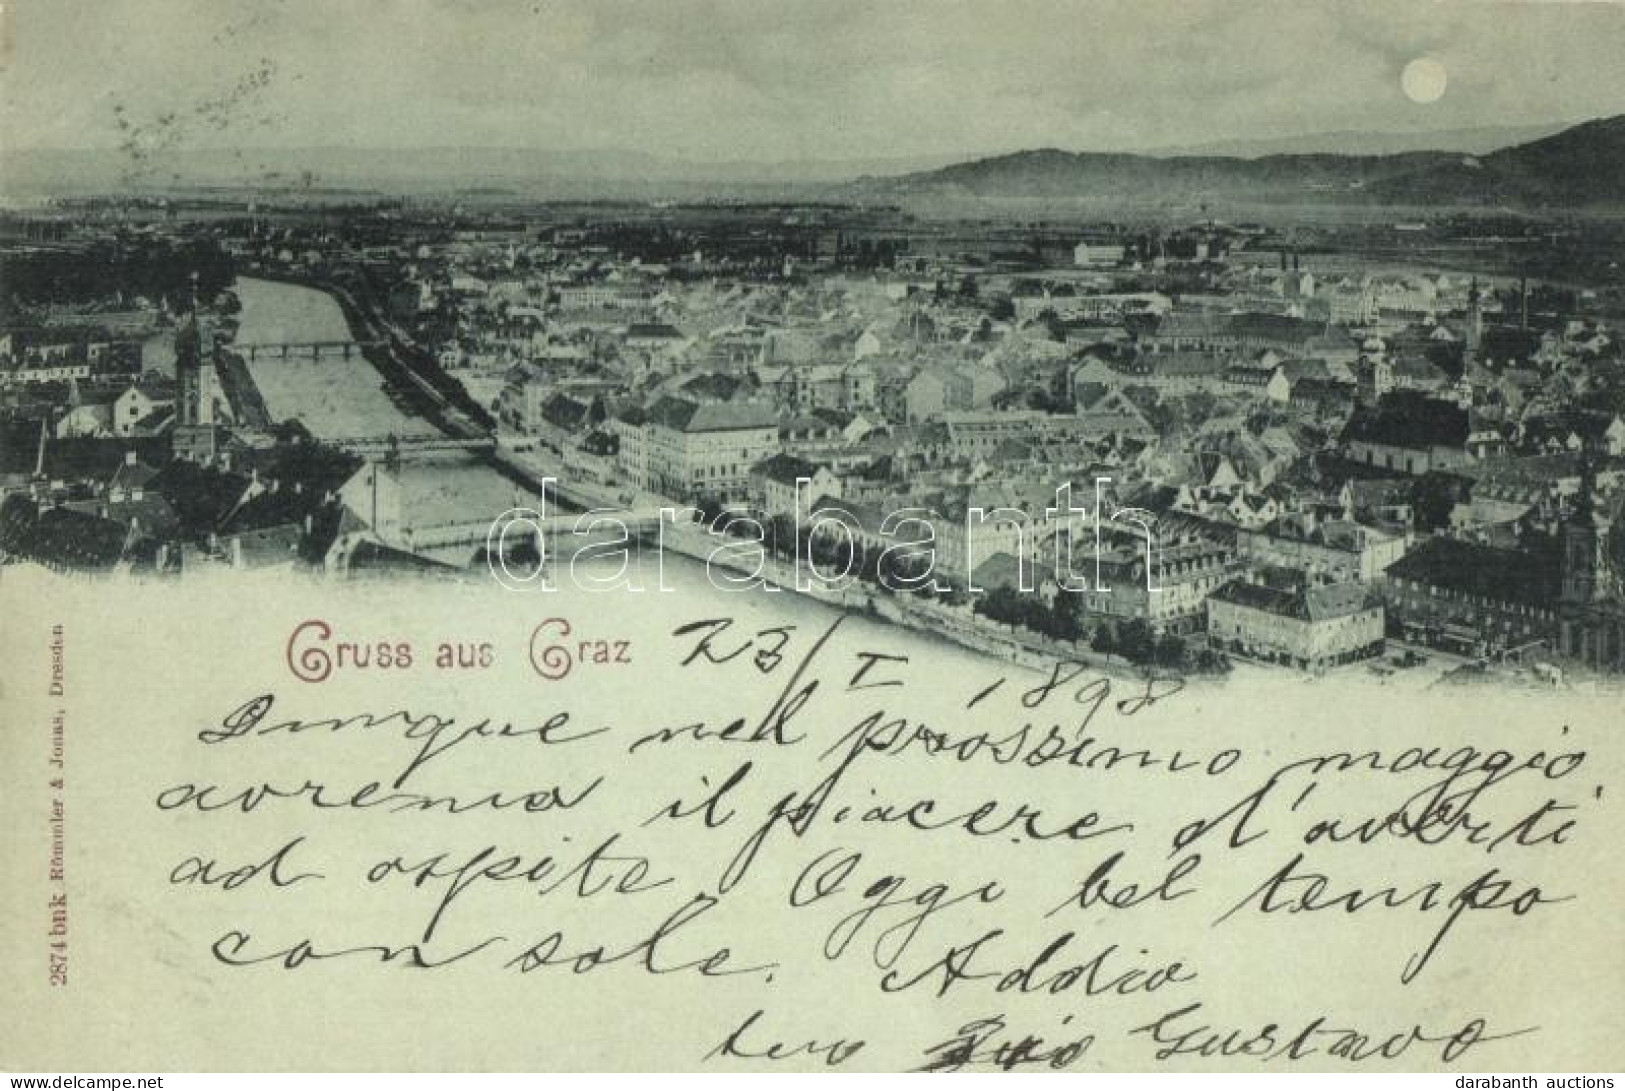 darabanth
Gruss aus Graz 23/I 1898
Dunque nel prossimo maggio
avremo il piacere d'averti
ad ospite. Oggi bel tempo
con sole. Addio
tuo Gustavo
2874 bnk Römmler & Jonas, Dresden
www.delcampe.net
darabanth auctions